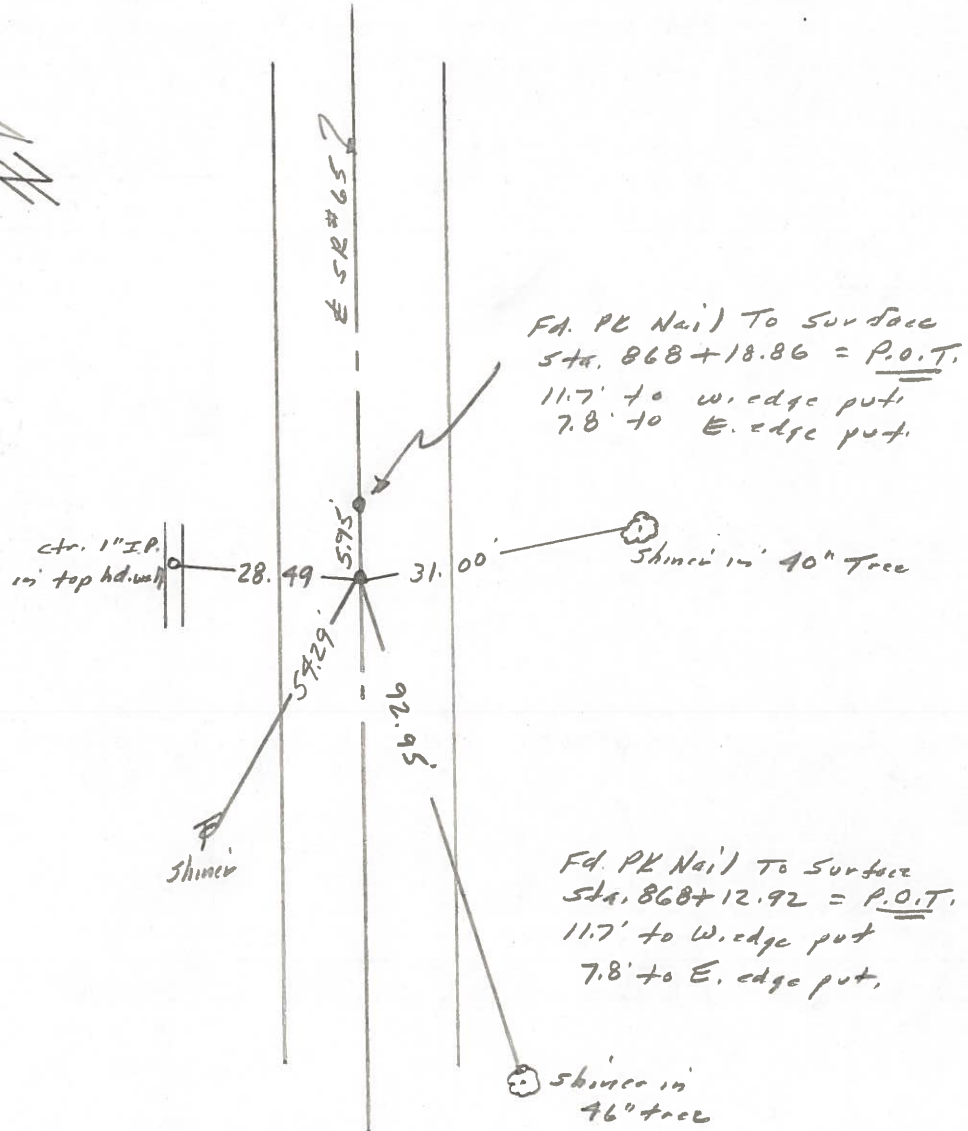 ℄ SR #65
Fd. PK Nail To Surface
Sta. 868+18.86 = P.O.T.
11.7' to W. edge pvt.
7.8' to E. edge pvt.
5.95'
ctr. 1" I.P.
in top hd.wall
28.49
31.00'
Shiner in 40" Tree
54.29'
92.95'
Shiner
Fd. PK Nail To Surface
Sta. 868+12.92 = P.O.T.
11.7' to W. edge pvt
7.8' to E. edge pvt.
Shiner in
46" tree